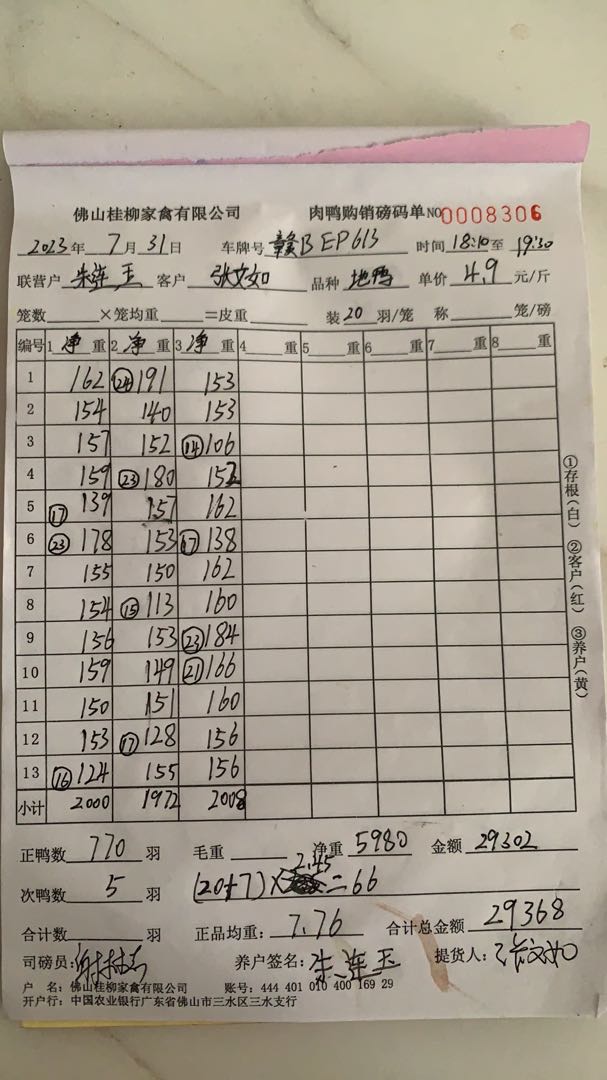 佛山桂柳家禽有限公司 肉鸭购销磅码单 NO 0008306
2023年 7月 31日 车牌号 赣B EP613 时间 18:10 至 19:30
联营户 朱连玉 客户 张文如 品种 地鸭 单价 4.9 元/斤
笼数 ×笼均重 =皮重 装 20 羽/笼 称 笼/磅
编号 1 净 重 2 净 重 3 净 重 4 重 5 重 6 重 7 重 8 重
1 162 ㉔ 191 153
2 154 140 153
3 157 152 ⑭ 106
4 159 ㉓ 180 152
5 ⑰ 139 157 162
6 ㉓ 178 153 ⑰ 138
7 155 150 162
8 154 ⑮ 113 160
9 156 153 ㉓ 184
10 159 149 ㉑ 166
11 150 151 160
12 153 ⑰ 128 156
13 ⑯ 124 155 156
小计 2000 1972 2008
①存根(白) ②客户(红) ③养户(黄)
正鸭数 770 羽 毛重 净重 5980 金额 29302
次鸭数 5 羽 (20+7)× 2.45 = 66
合计数 羽 正品均重: 7.76 合计总金额 29368
司磅员: 养户签名: 朱连玉 提货人: 张文如
户 名: 佛山桂柳家禽有限公司 账号: 444 401 010 400 169 29
开户行: 中国农业银行广东省佛山市三水区三水支行